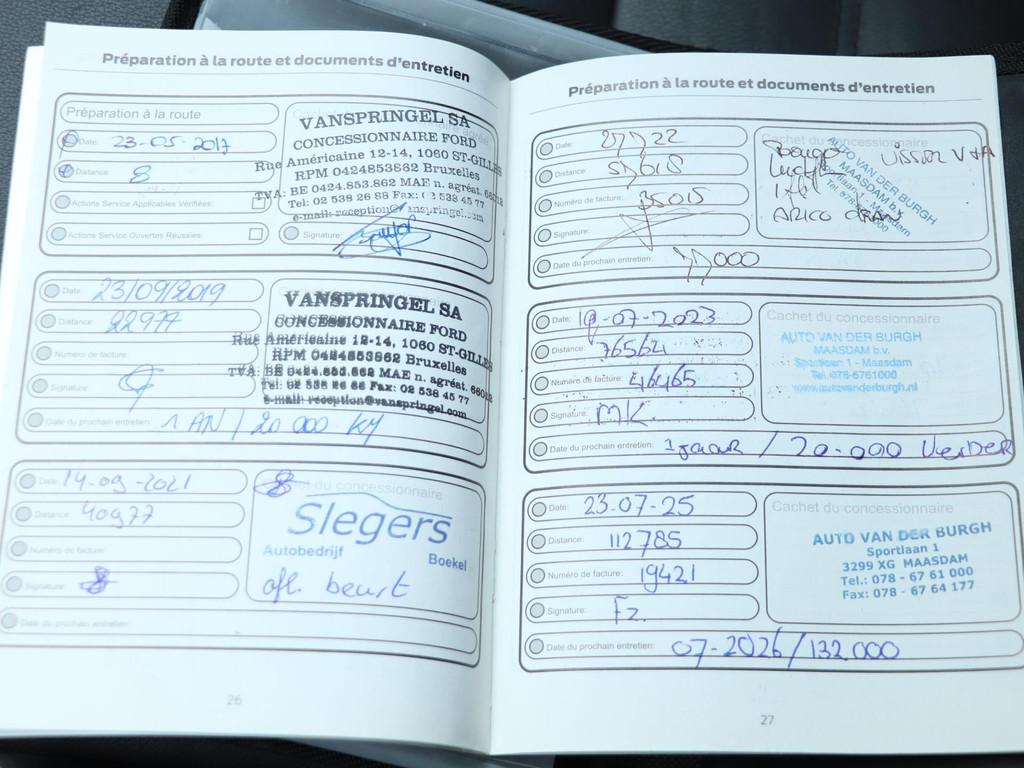 Préparation à la route et documents d'entretien
Préparation à la route
Date: 23-05-2017
Distance: 8
Actions Service Applicables Vérifiées:
Actions Service Ouvertes Réussies:
VANSPRINGEL SA
CONCESSIONNAIRE FORD
Rue Américaine 12-14, 1060 ST-GILLES
RPM 0424853862 Bruxelles
TVA: BE 0424.853.862 MAE n. agréat.
Tel: 02 538 26 88 Fax: 02 538 45 77
e-mail: reception@vanspringel.com
Signature:
Date: 23/09/2019
Distance: 22977
Numéro de facture:
Signature:
Date du prochain entretien: 1 AN / 20 000 KM
VANSPRINGEL SA
CONCESSIONNAIRE FORD
Rue Américaine 12-14, 1060 ST-GILLES
RPM 0424853862 Bruxelles
TVA: BE 0424.853.862 MAE n. agréat.
Fax: 02 538 45 77
e-mail: reception@vanspringel.com
Date: 14-09-2021
Distance: 40977
Numéro de facture:
Signature:
Date du prochain entretien:
du concessionnaire
Slegers
Autobedrijf
Boekel
afl. beurt
26
Préparation à la route et documents d'entretien
Date:
Distance:
Numéro de facture:
Signature:
Date du prochain entretien:
Cachet du concessionnaire
AUTO VAN DER BURGH
MAASDAM b.v.
Date: 19-07-2023
Distance: 76564
Numéro de facture: 46465
Signature: MK.
Date du prochain entretien: 1 jaar / 20.000 Verder
Cachet du concessionnaire
AUTO VAN DER BURGH
MAASDAM b.v.
Sportlaan 1 - Maasdam
Tel. 078-6761000
www.autovanderburgh.nl
Date: 23-07-25
Distance: 112785
Numéro de facture: 19421
Signature: Fz.
Date du prochain entretien: 07-2026/132.000
Cachet du concessionnaire
AUTO VAN DER BURGH
Sportlaan 1
3299 XG MAASDAM
Tel.: 078 - 67 61 000
Fax: 078 - 67 64 177
27